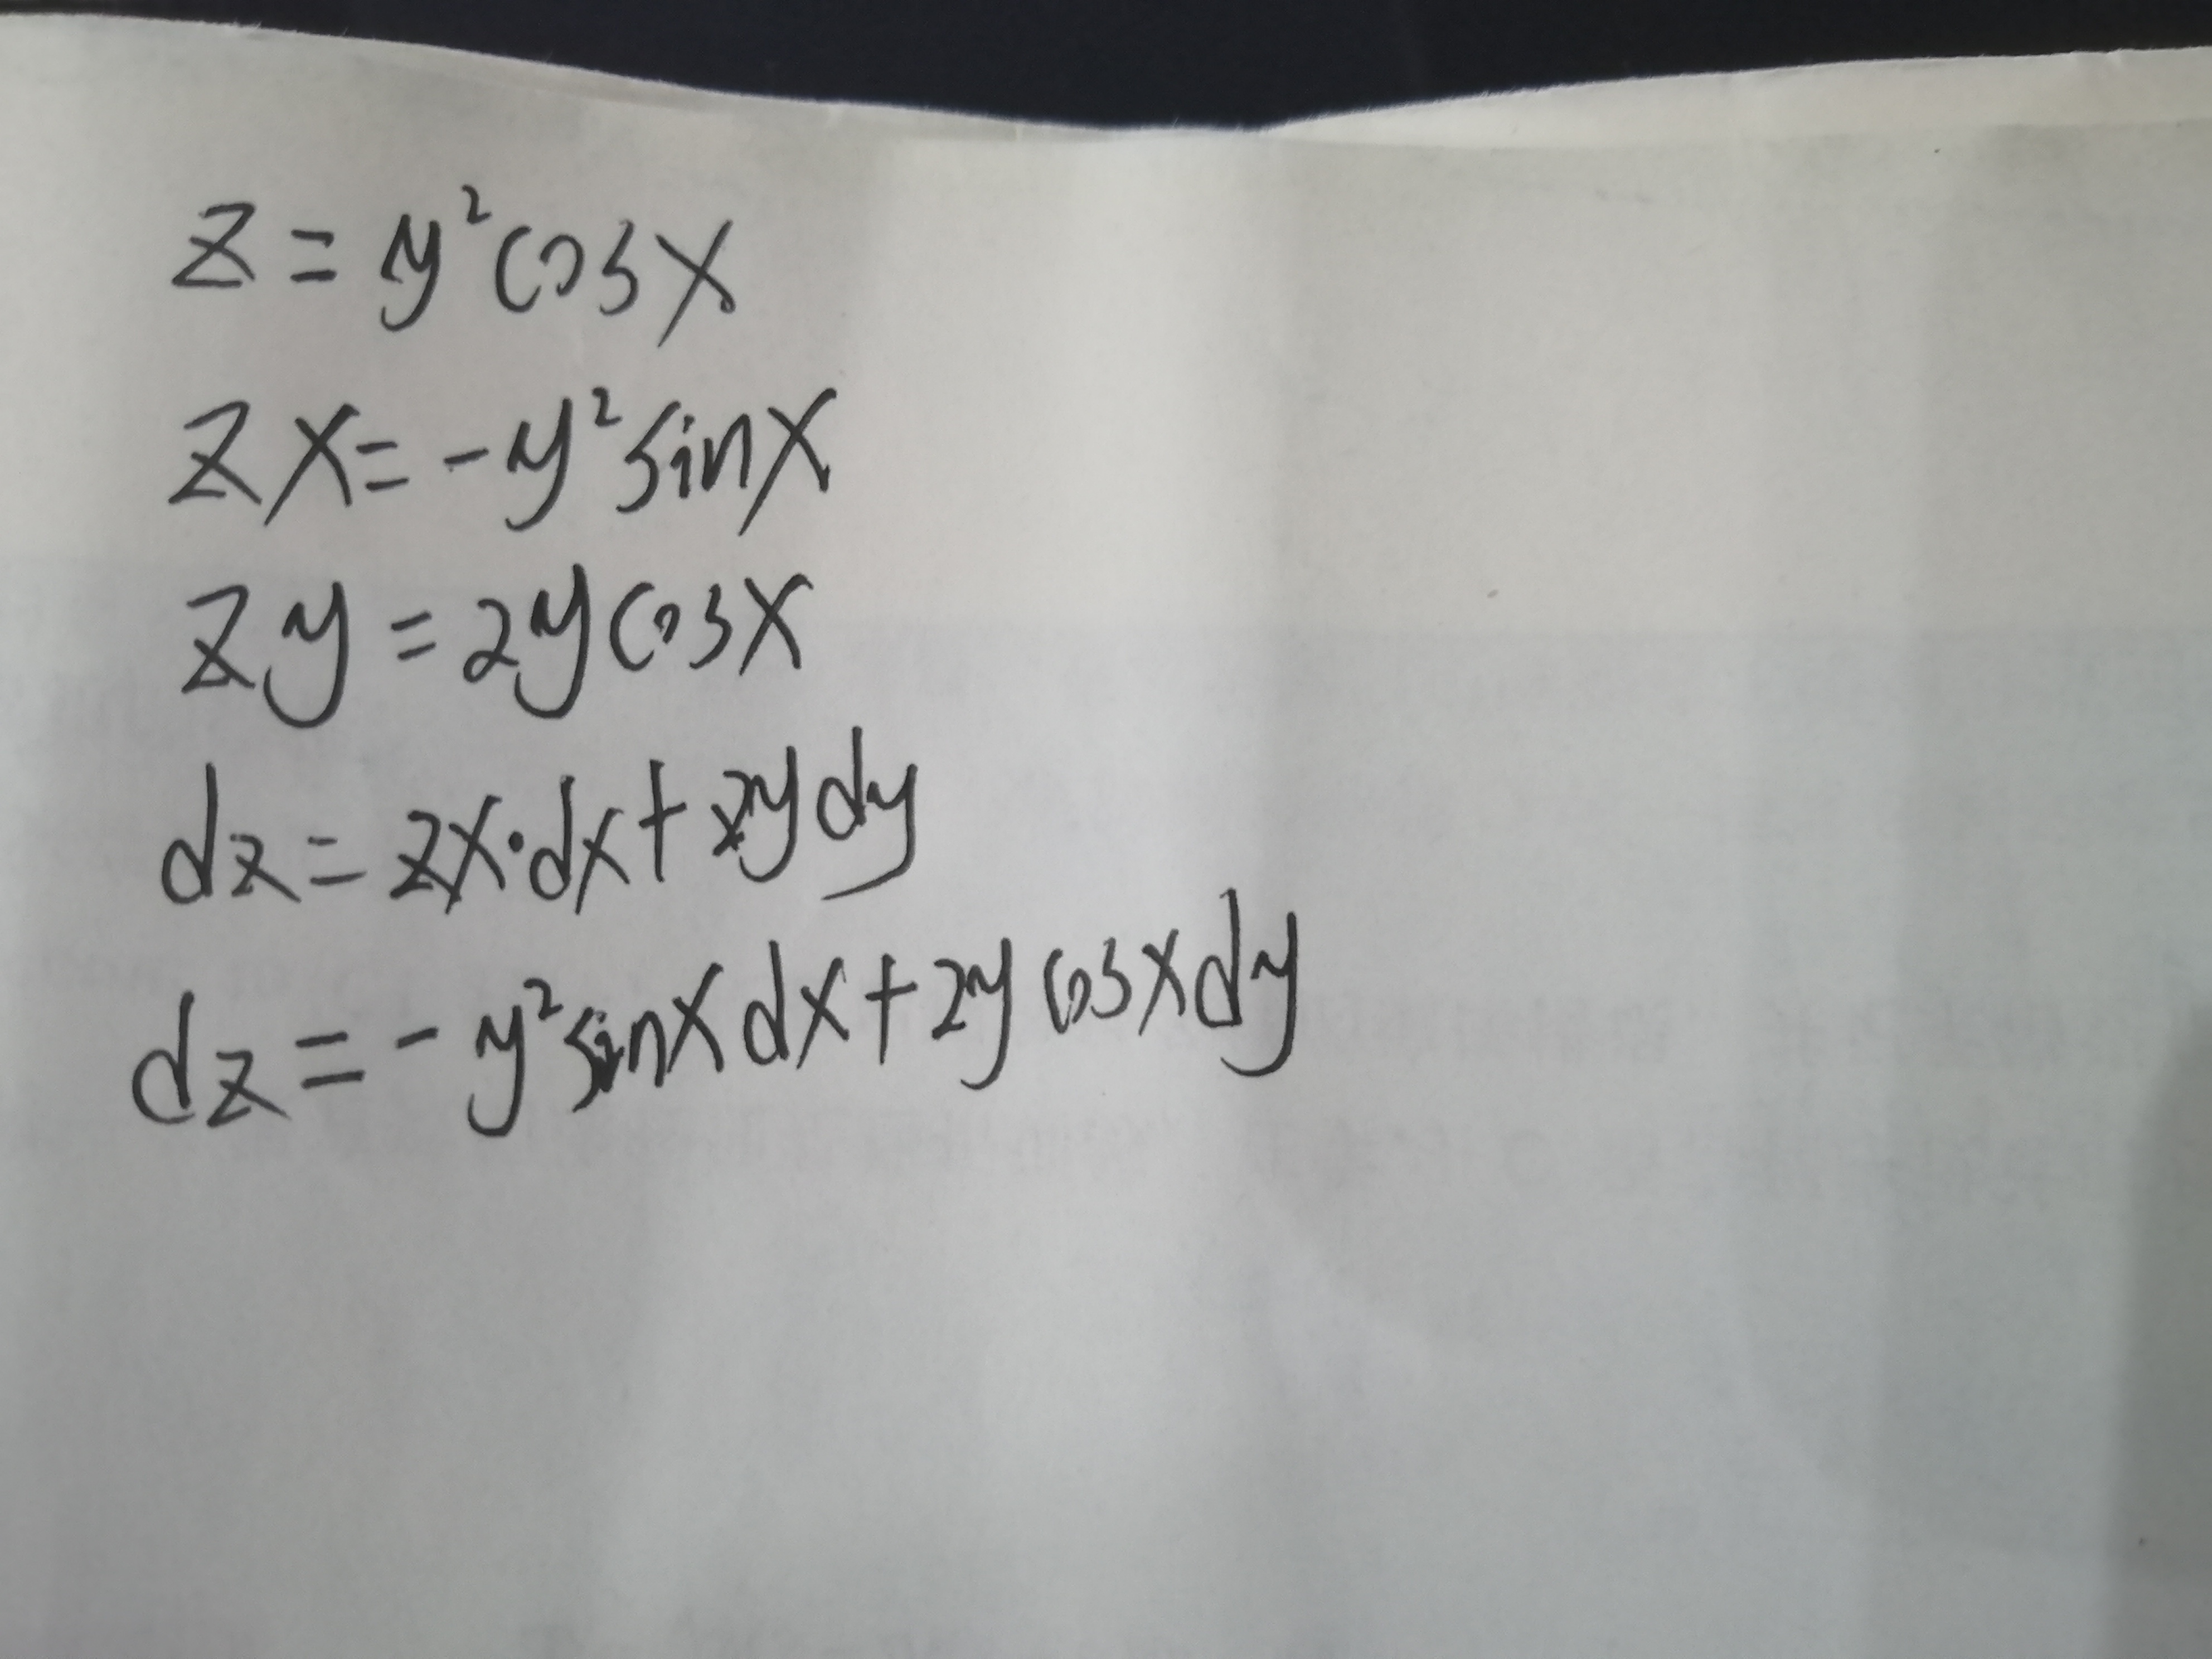 z = y²cosx
zx = -y²sinx
zy = 2ycosx
dz = zx·dx + zydy
dz = -y²sinxdx + 2ycosxdy